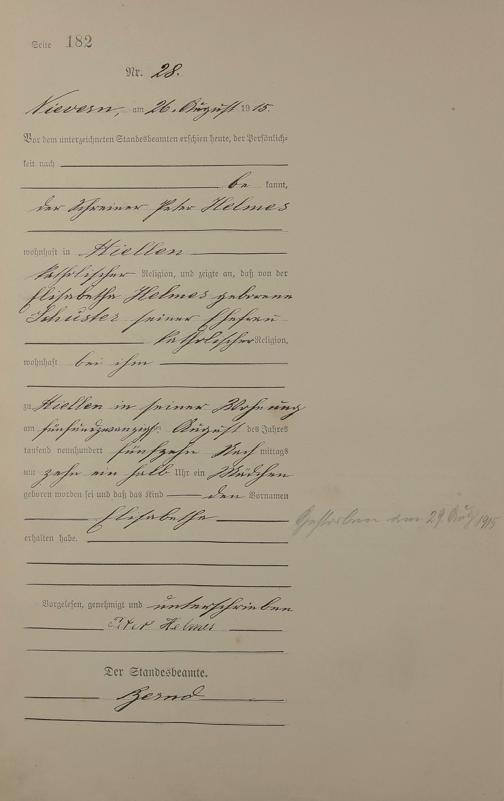 Seite 182
Nr. 28.
Nievern, am 26. August 1915.
Vor dem unterzeichneten Standesbeamten erschien heute, der Persönlich-
keit nach
be kannt,
der Schreiner Peter Helmes
wohnhaft in Miellen
katholischer Religion, und zeigte an, daß von der
Elisabetha Helmes geborene
Schuster seiner Ehefrau
katholischer Religion,
wohnhaft bei ihm
zu Miellen in seiner Wohnung
am fünfundzwanzigsten August des Jahres
tausend neunhundert fünfzehn Nach mittags
um zehn ein halb Uhr ein Mädchen
geboren worden sei und daß das Kind den Vornamen
Elisabetha
erhalten habe.
Gestorben am 29. Aug 1915
Vorgelesen, genehmigt und unterschrieben
Peter Helmes
Der Standesbeamte.
Bernd